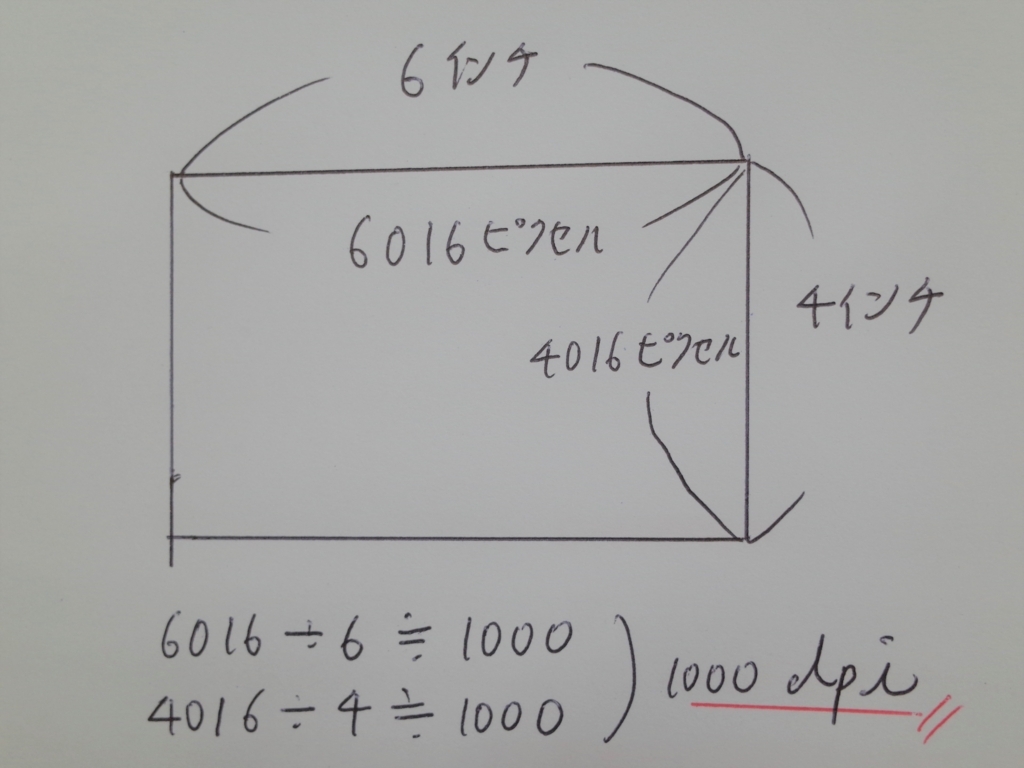 6インチ
6016ピクセル
4インチ
4016ピクセル
6016÷6≒1000
4016÷4≒1000
1000 dpi